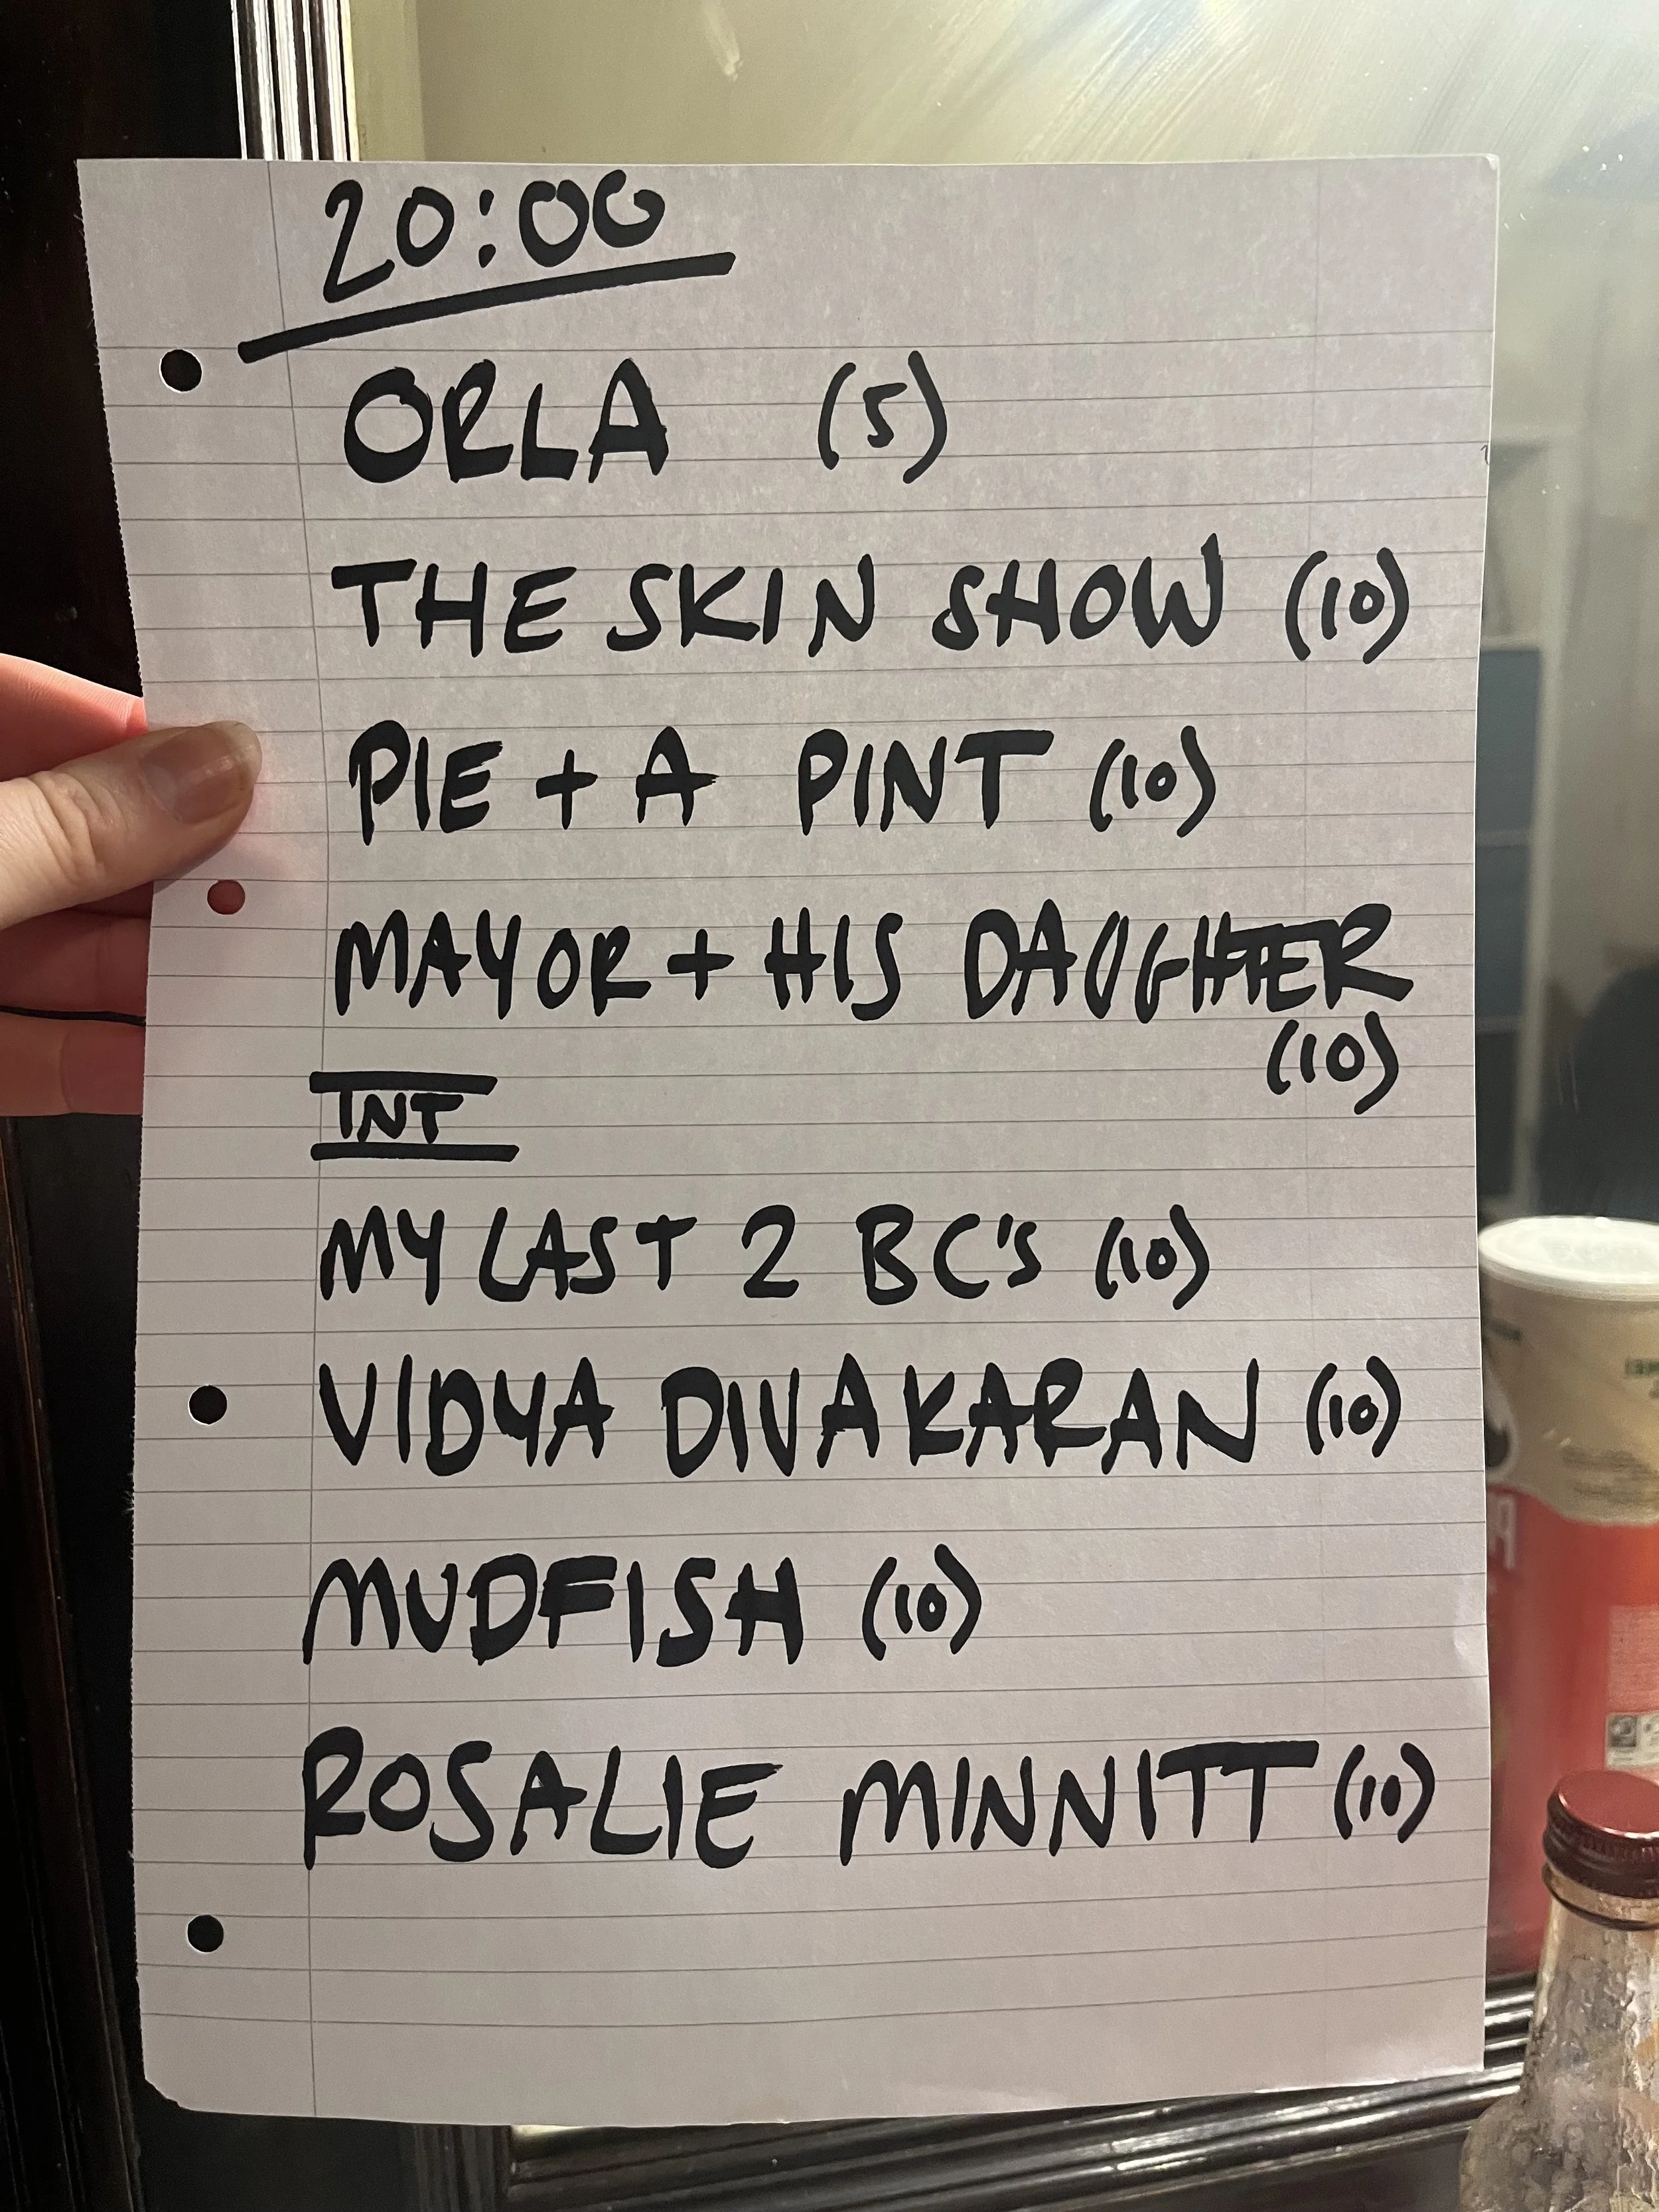 20:00
ORLA (5)
THE SKIN SHOW (10)
PIE + A PINT (10)
MAYOR + HIS DAUGHTER
(10)
INT
MY LAST 2 BC'S (10)
VIDYA DIVAKARAN (10)
MUDFISH (10)
ROSALIE MINNITT (10)